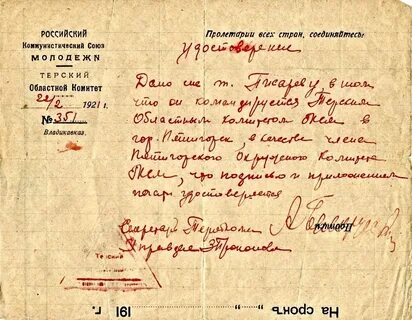 РОССИЙСКИЙ
Коммунистический Союз
МОЛОДЕЖИ
ТЕРСКИЙ
Областной Комитет
22/2 1921 г.
№ 351
Владикавказ.
Пролетарии всех стран, соединяйтесь!
Удостоверение
Дано сие т. Писареву в том
что он командируется Терским
Областным комитетом РКСМ в
гор. Пятигорск, в качестве члена
Пятигорского Окружного Комитета
РКСМ, что подписью и приложением
печати удостоверяется
Секретарь
Терский
На срокъ
191 г.